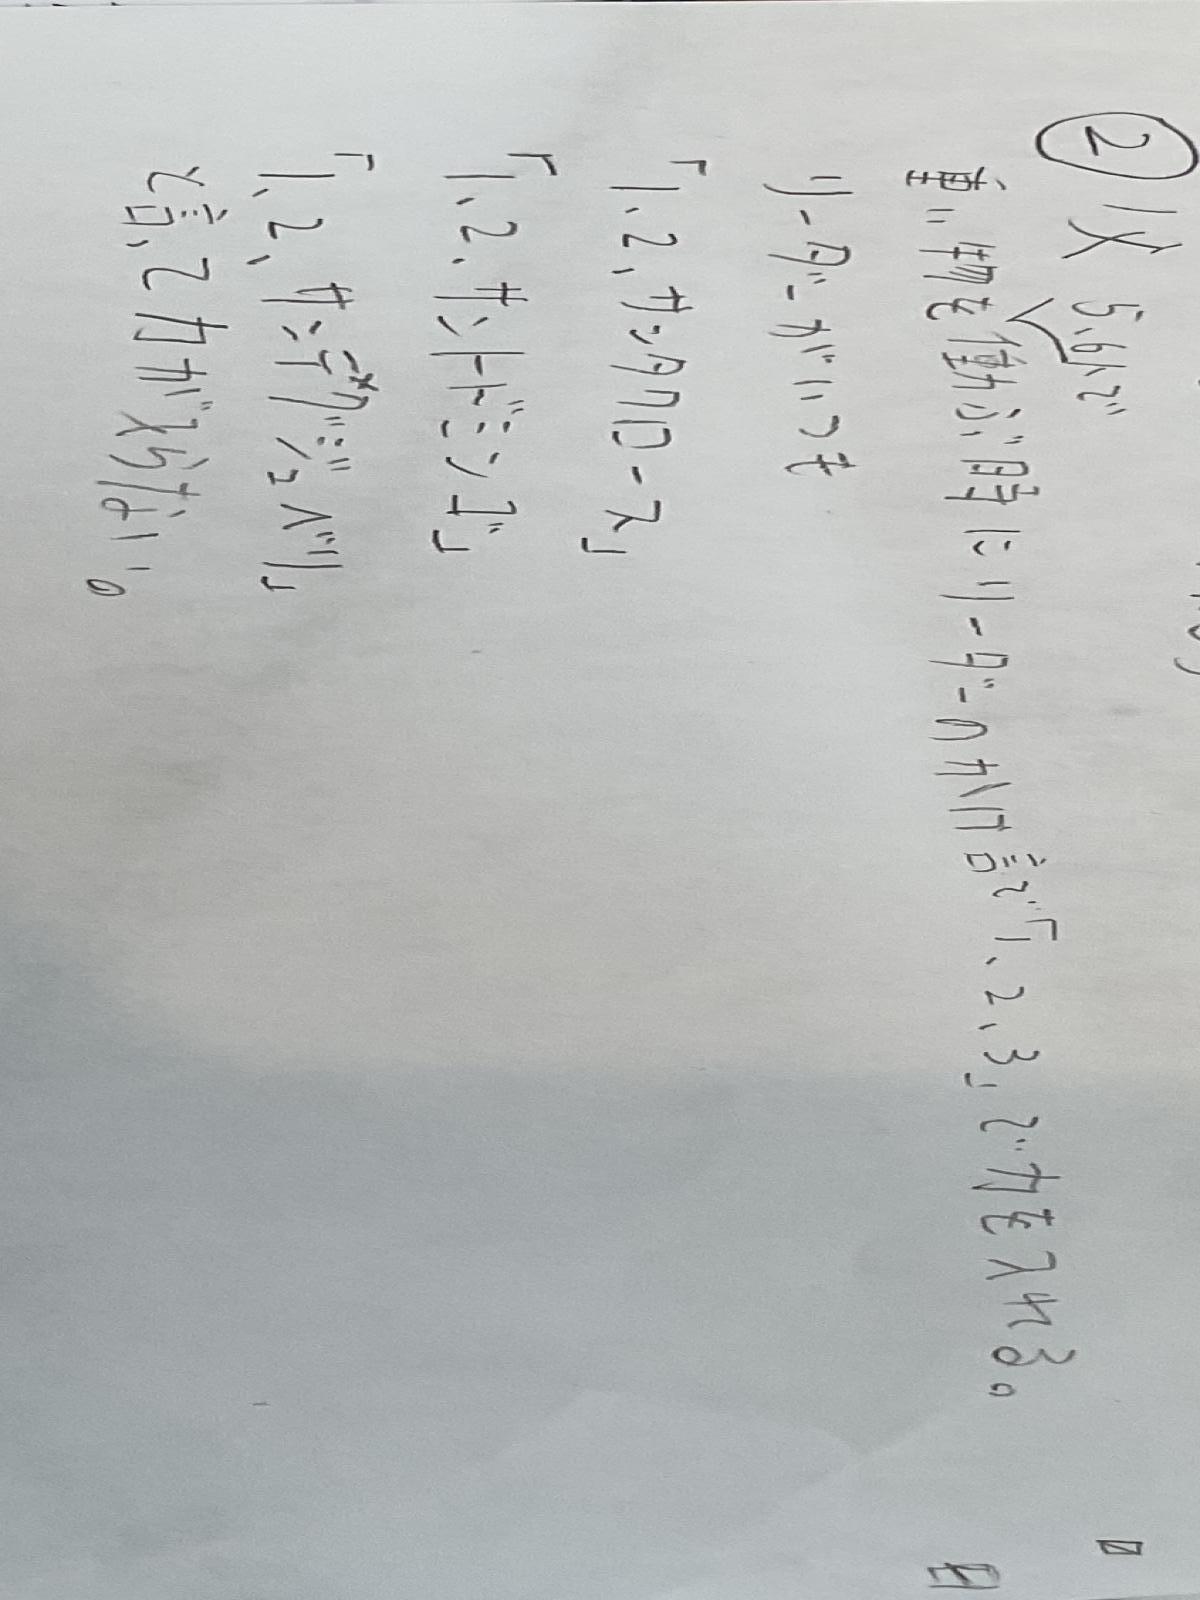 ② 1人 5,6人で
重い物を動かす時にリーダーのカケ声で「1、2、3」で力を入れる。
リーダーがいつも
「1、2、サンタクロース」
「1、2、サントドミンゴ」
「1、2、サンテグジュペリ」
と言って力が入らない。